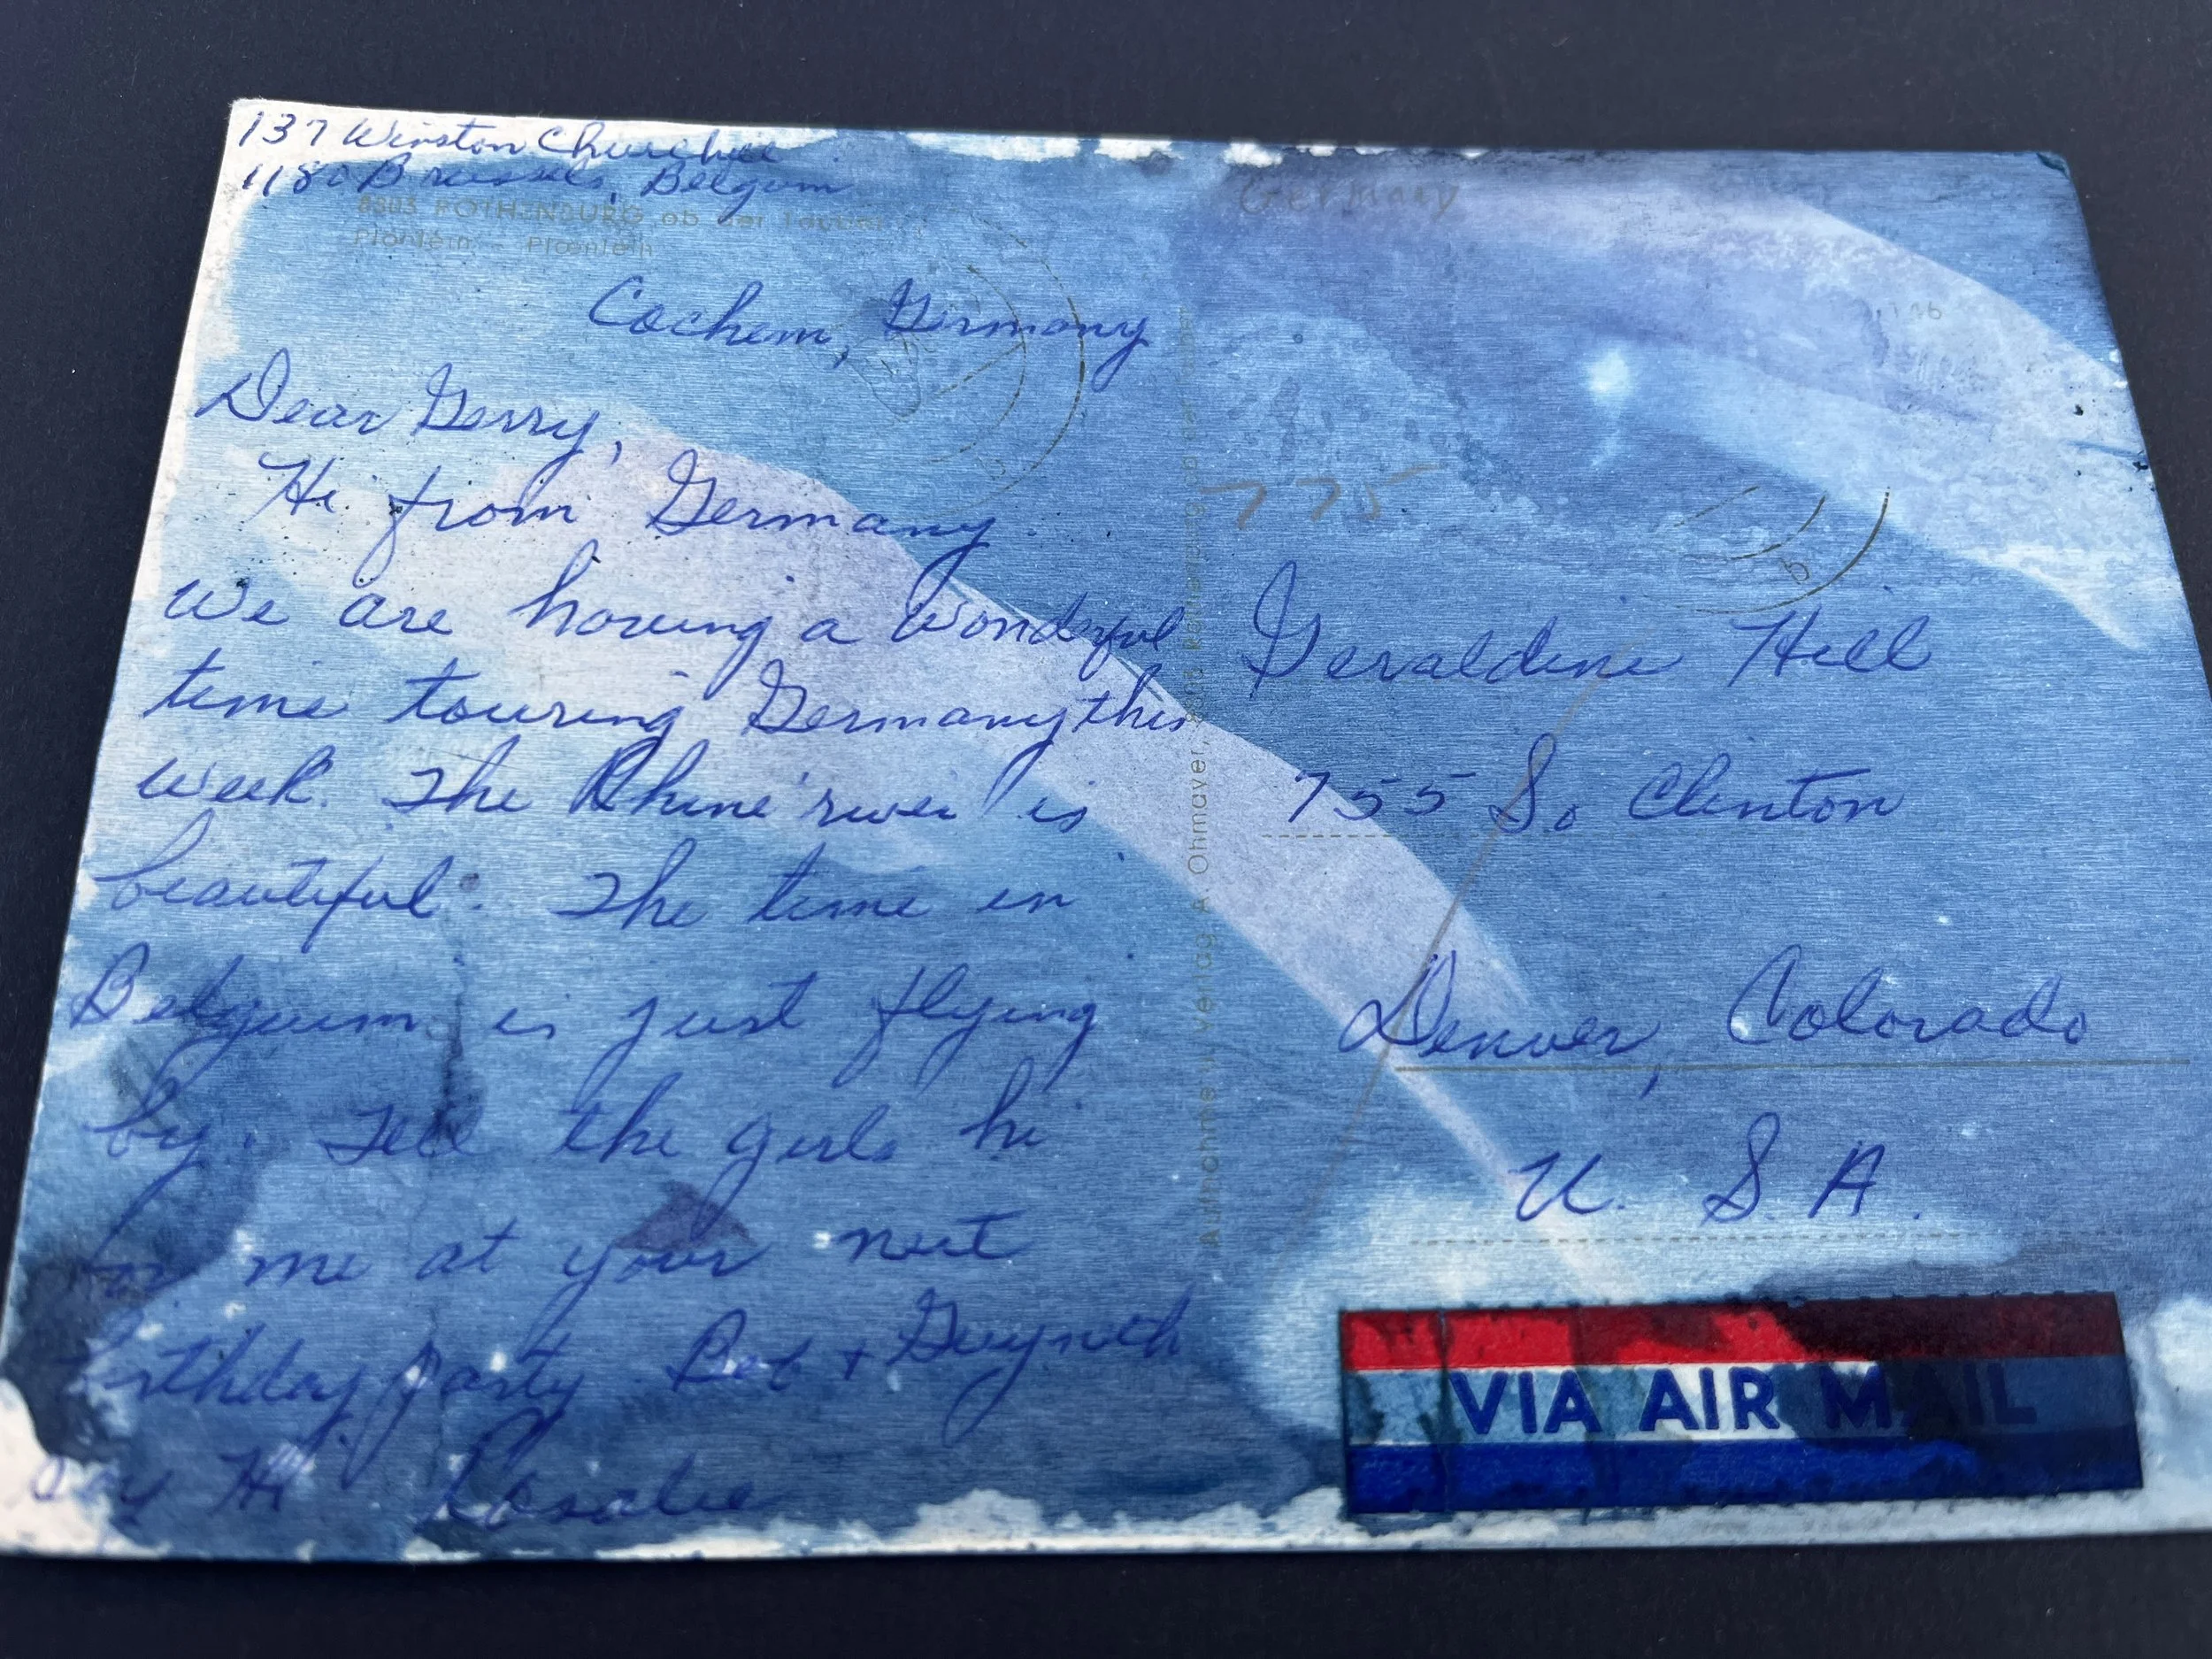 137 Winston Churchill
1180 Brussels, Belgium
8803 ROTHENBURG ob der Tauber
Plönlein - Plœnlein
Cochem, Germany
Dear Gerry,
Hi from Germany
We are having a wonderful
time touring Germany this
week. The Rhine river is
beautiful. The time in
Belguim is just flying
by. Tell the girls hi
for me at your next
birthday party. Bot + Gwyneth
say Hi Rosalie
Germany
775
Geraldine Hill
755 So Clinton
Denver, Colorado
U. S. A.
Aufnahme u. Verlag A. Ohmayer, 8803 Rothenburg
b
b
VIA AIR MAIL